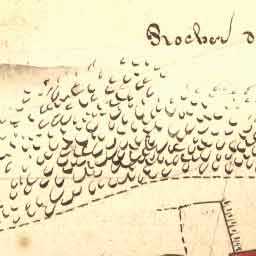 Rocher d